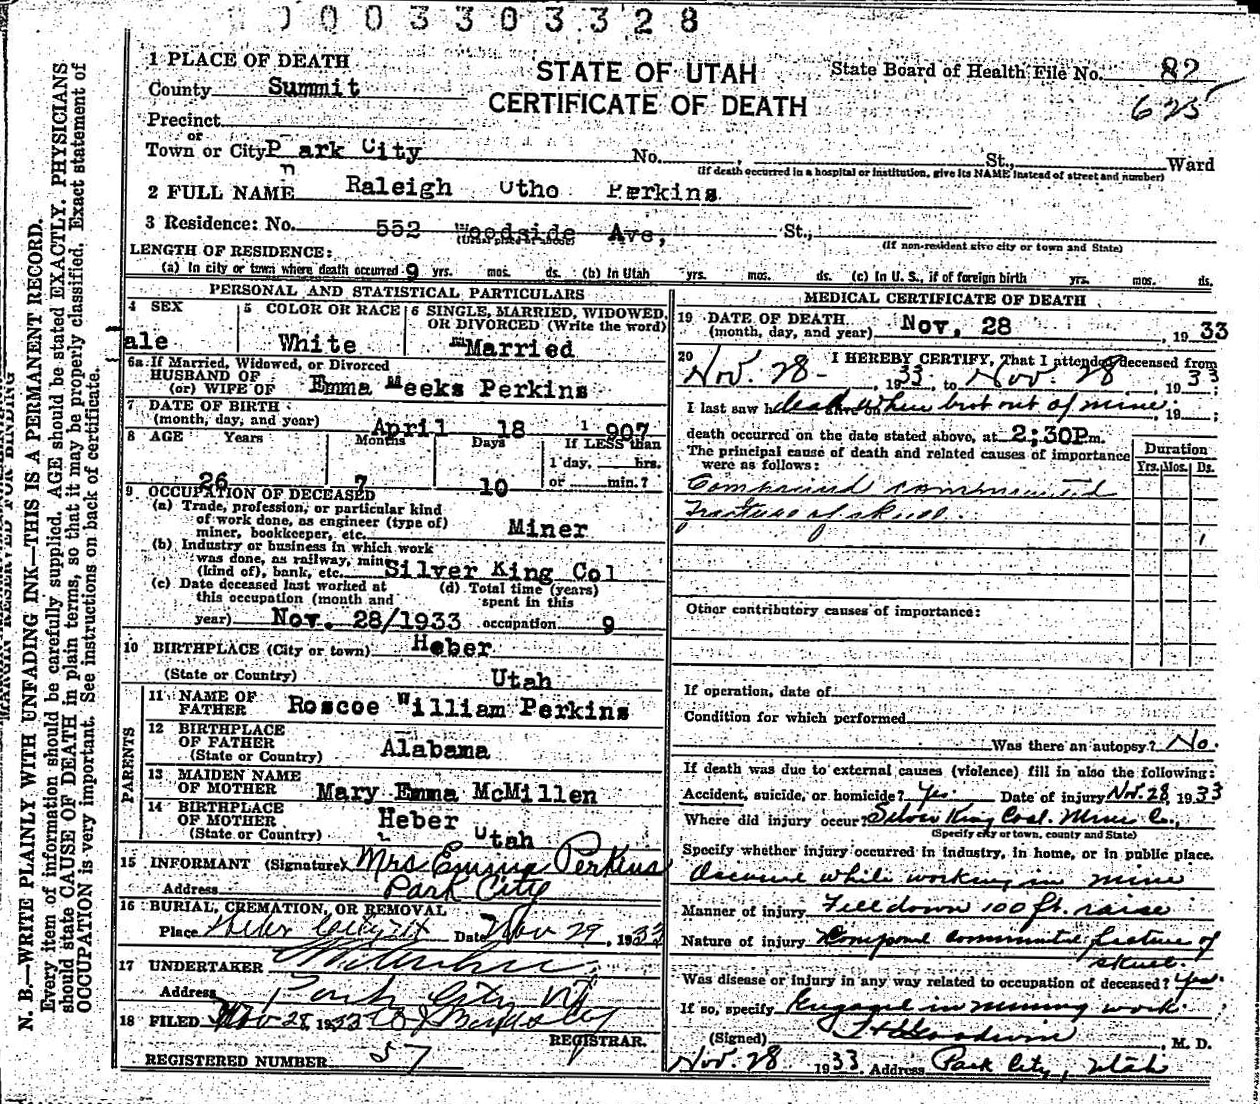 0 0 0 3 3 0 3 3 2 8
1 PLACE OF DEATH
STATE OF UTAH
CERTIFICATE OF DEATH
State Board of Health File No. 82
625
County Summit
Precinct
or
Town or City Park City No. , St., Ward
(If death occurred in a hospital or institution, give its NAME instead of street and number)
2 FULL NAME Raleigh Otho Perkins
3 Residence: No. 552 Woodside Ave, St.,
(Usual place of abode) (If non-resident give city or town and State)
LENGTH OF RESIDENCE:
(a) In city or town where death occurred 9 yrs. mos. ds. (b) In Utah yrs. mos. ds. (c) In U. S., if of foreign birth yrs. mos. ds.
PERSONAL AND STATISTICAL PARTICULARS
4 SEX
ale
5 COLOR OR RACE
White
6 SINGLE, MARRIED, WIDOWED,
OR DIVORCED (Write the word)
Married
6a If Married, Widowed, or Divorced
HUSBAND OF
(or) WIFE OF Emma Meeks Perkins
7 DATE OF BIRTH
(month, day, and year) April 18 1907
8 AGE Years Months Days If LESS than
1 day, hrs.
26 7 10 or min.?
9 OCCUPATION OF DECEASED
(a) Trade, profession, or particular kind
of work done, as engineer (type of)
miner, bookkeeper, etc. Miner
(b) Industry or business in which work
was done, as railway, mine
(kind of), bank, etc. Silver King Col
(c) Date deceased last worked at (d) Total time (years)
this occupation (month and spent in this
year) Nov. 28/1933 occupation 9
10 BIRTHPLACE (City or town) Heber
(State or Country) Utah
PARENTS
11 NAME OF
FATHER Roscoe William Perkins
12 BIRTHPLACE
OF FATHER
(State or Country) Alabama
13 MAIDEN NAME
OF MOTHER Mary Emma McMillen
14 BIRTHPLACE
OF MOTHER Heber
(State or Country) Utah
15 INFORMANT (Signature) Mrs Emma Perkins
Address Park City
16 BURIAL, CREMATION, OR REMOVAL
Place Heber City Ut Date Nov 29, 1933
17 UNDERTAKER
Address Park City Ut
18 FILED Nov 28 1933
REGISTRAR.
REGISTERED NUMBER 57
MEDICAL CERTIFICATE OF DEATH
19 DATE OF DEATH
(month, day, and year) Nov. 28, 1933
20 I HEREBY CERTIFY, That I attended deceased from
Nov. 28 - , 1933, to Nov. 28, 1933
I last saw h dead when brot out of mine. 19 ;
death occurred on the date stated above, at 2;30P m.
The principal cause of death and related causes of importance
were as follows:
Duration
Yrs. Mos. Ds.
Compound comminuted
Fracture of skull.
Other contributory causes of importance:
If operation, date of
Condition for which performed
Was there an autopsy? No.
If death was due to external causes (violence) fill in also the following:
Accident, suicide, or homicide? Yes. Date of injury Nov. 28, 1933
Where did injury occur? Silver King Coal. Mine Co.,
(Specify city or town, county and State)
Specify whether injury occurred in industry, in home, or in public place.
while working in mine
Manner of injury Fell down 100 ft. raise
Nature of injury Compound comminuted fracture of
skull.
Was disease or injury in any way related to occupation of deceased? Yes.
If so, specify Engaged in mining work
(Signed) Goodwin, M. D.
Nov. 28 1933 Address Park City, Utah
N. B.—WRITE PLAINLY WITH UNFADING INK—THIS IS A PERMANENT RECORD.
Every item of information should be carefully supplied. AGE should be stated EXACTLY. PHYSICIANS
should state CAUSE OF DEATH in plain terms, so that it may be properly classified. Exact statement of
OCCUPATION is very important. See instructions on back of certificate.
MARGIN RESERVED FOR BINDING